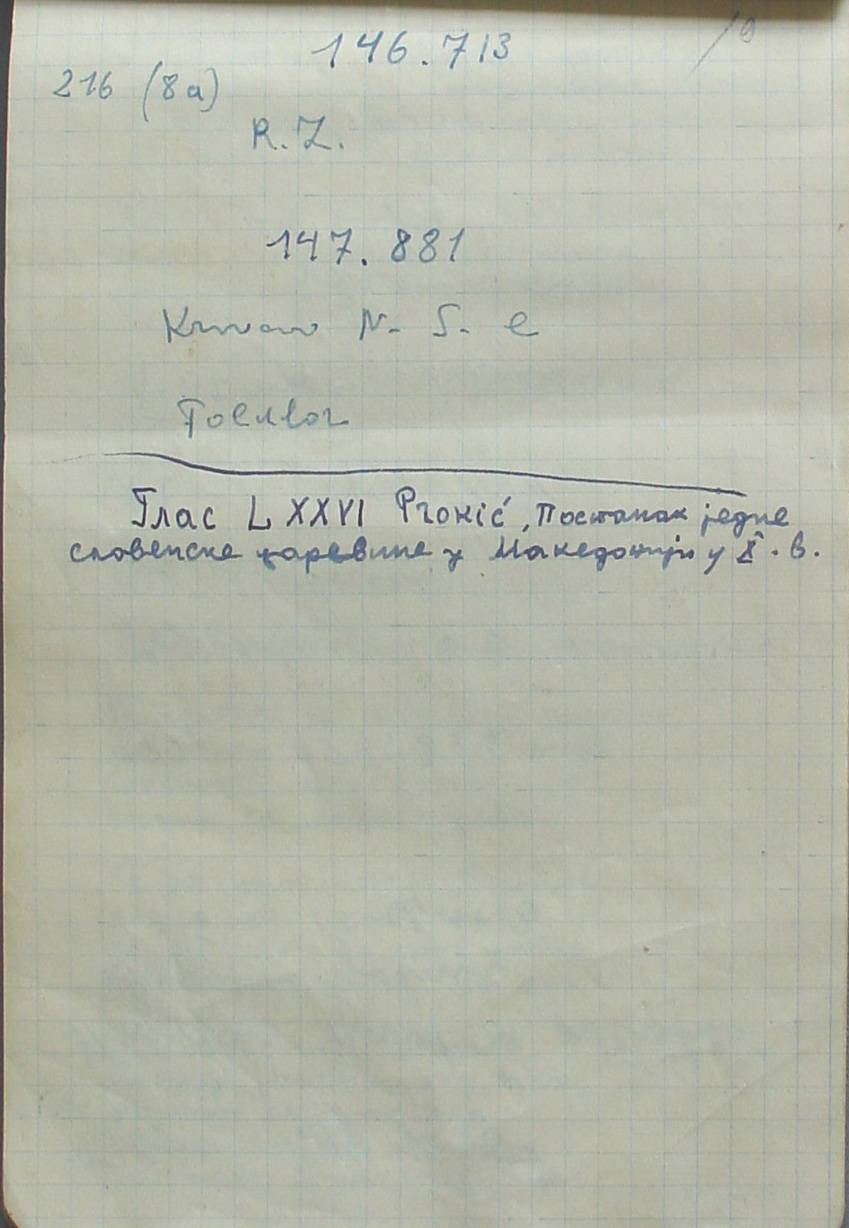 146.713
216 (8a)
R. Z.
147.881
N. S. e
Глас LXXVI Prокić, Постанак једне
словенске царевине у Македонији у X. в.